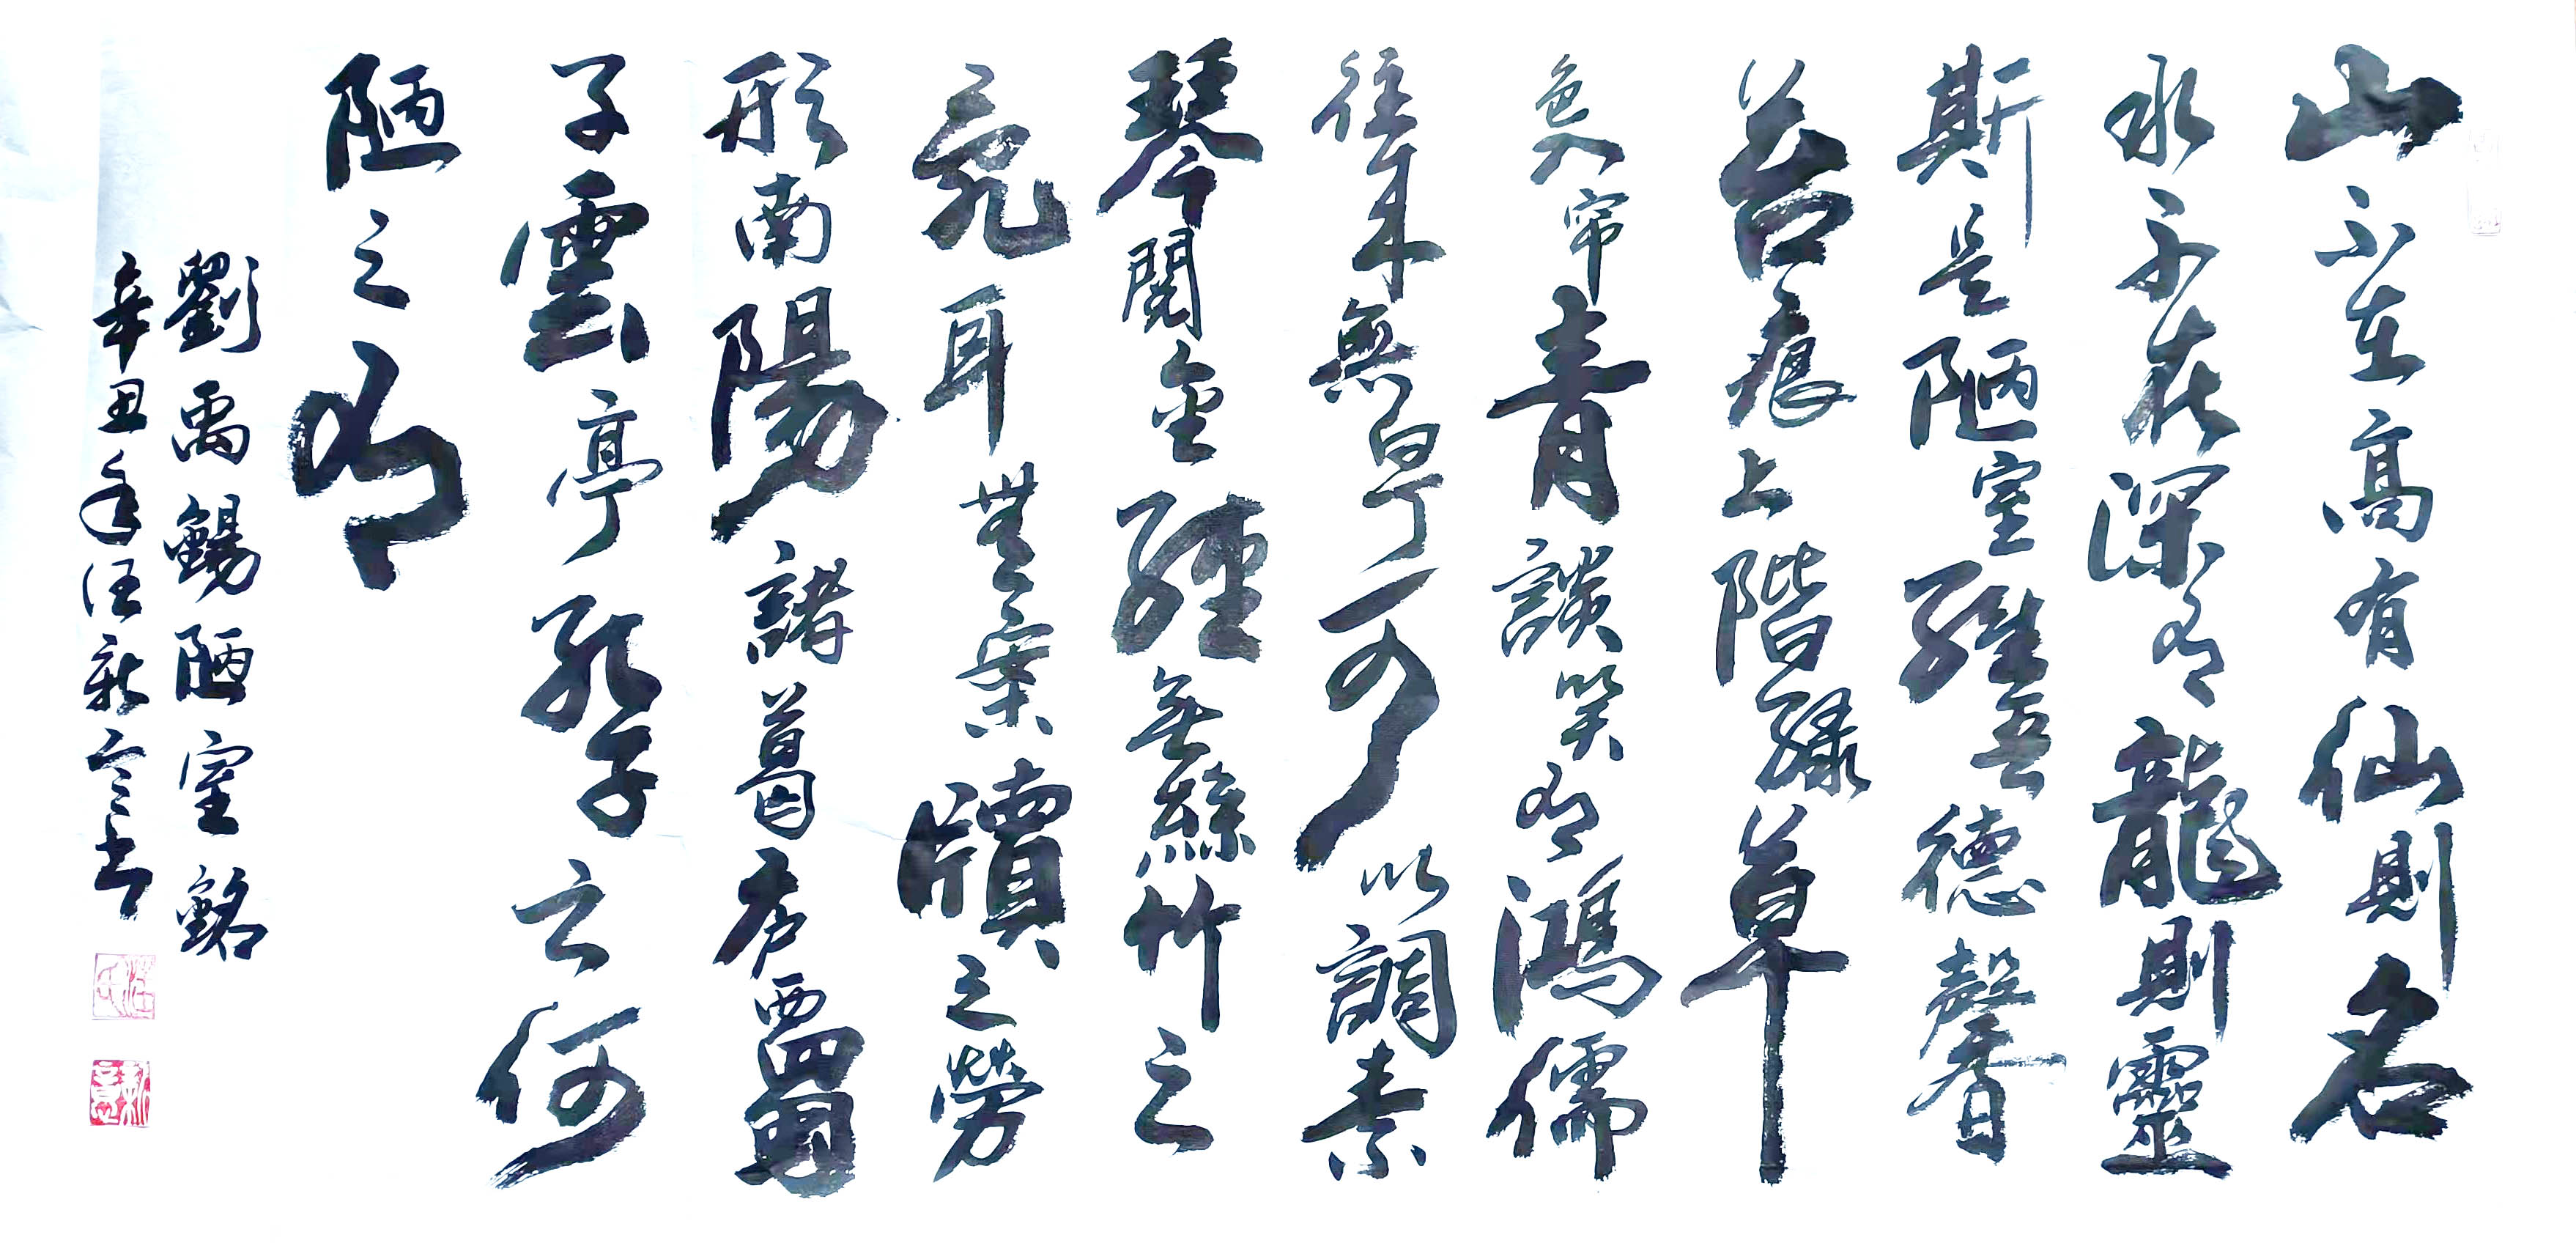 山不在高有仙則名
水不在深有龍則靈
斯是陋室維吾德馨
苔痕上階緑草
色入帘青談笑有鴻儒
往来無白丁可以調素
琴閱金經無絲竹之
亂耳無案牘之勞
形南陽諸葛庐西蜀
子雲亭孔子云何
陋之有
劉禹錫陋室銘
辛丑年汪新意书
汪氏
新意